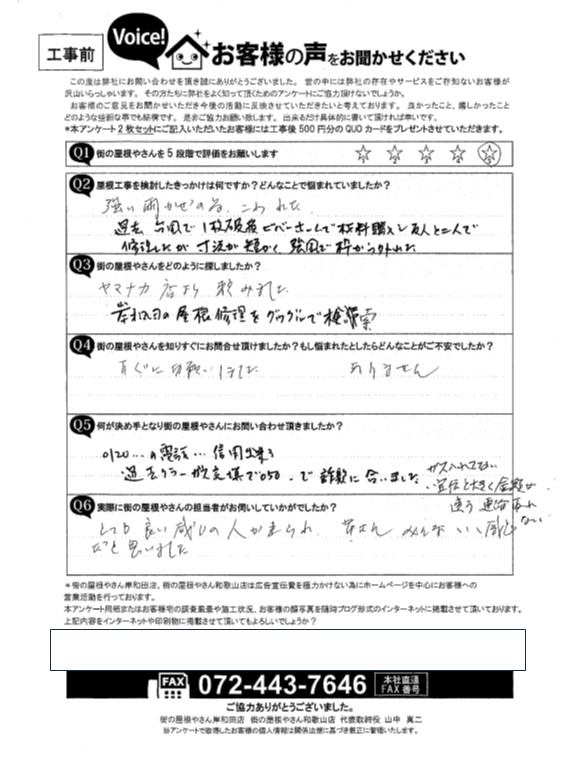 工事前
Voice!
お客様の声をお聞かせください
この度は弊社にお問い合わせを頂き誠にありがとうございました。世の中には弊社の存在やサービスをご存知ないお客様が
沢山いらっしゃいます。その方たちに弊社をよく知って頂くためのアンケートにご協力頂けないでしょうか。
お客様のご意見をお聞かせいただき今後の活動に反映させていただきたいと考えております。良かったこと、嬉しかったこと
どのような些細な事でも結構です。是非ご協力お願い致します。出来るだけ具体的に書いて頂ければ幸いです。
*本アンケート2枚セットにご記入いただいたお客様には工事後500円分のQUOカードをプレゼントさせていただきます。
Q1 街の屋根やさんを5段階で評価をお願いします
1 2 3 4 5
Q2 屋根工事を検討したきっかけは何ですか?どんなことで悩まれていましたか?
強い雨かぜの為、こわれた。
過去 台風で1枚破損 ビバホームで材料購入し友人と二人で
修理したが 寸法が短かく、強風で枠から外れた
Q3 街の屋根やさんをどのように探しましたか?
ヤマナカ 店より 頼みました
岸和田の屋根修理をグーグルで検索
Q4 街の屋根やさんを知りすぐにお問合せ頂けましたか?もし悩まれたとしたらどんなことがご不安でしたか?
すぐにお願いしました ありません
Q5 何が決め手となり街の屋根やさんにお問い合わせ頂きましたか?
0120...の電話...信用出来る
過去クーラー修理で050..で詐欺に合いました
ガス入れてない
宣伝と大きく金額が
違う 連絡取れ
ない
Q6 実際に街の屋根やさんの担当者がお伺いしていかがでしたか?
とても良い感じの人が来られ、 みんな いい感じ
だと思いました
*街の屋根やさん岸和田店、街の屋根やさん和歌山店は広告宣伝費を極力かけない為にホームページを中心にお客様への
営業活動を行っております。
本アンケート用紙またはお客様宅の調査風景や施工状況、お客様の顔写真を随時ブログ形式のインターネットに掲載させて頂いております。
上記内容をインターネットや印刷物に掲載させて頂いてもよろしいでしょうか?
FAX 072-443-7646 本社直通
FAX番号
ご協力ありがとうございました。
街の屋根やさん岸和田店 街の屋根やさん和歌山店 代表取締役 山中 真二
※アンケートで取得したお客様の個人情報は関係法規に基づき厳正に管理いたします。